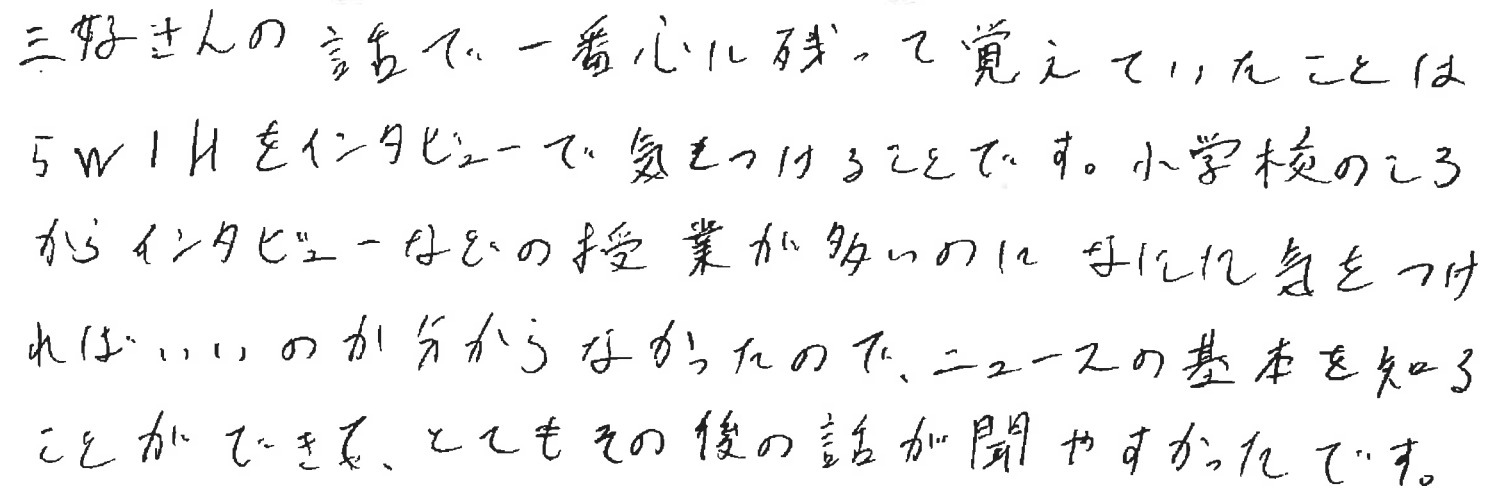 三好さんの話で一番心に残って覚えていたことは
5W1Hをインタビューで気をつけることです。小学校のころ
からインタビューなどの授業が多いのになにに気をつけ
ればいいのか分からなかったので、ニュースの基本を知る
ことができて、とてもその後の話が聞やすかったです。